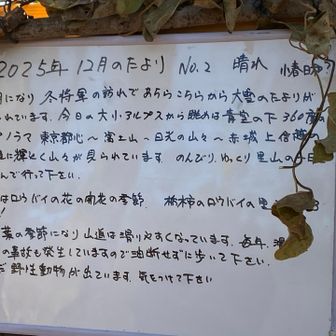 2025年 12月のたより No.2 晴れ 小春日
月になり 冬将軍の訪れで あちらこちらから 大雪のたよりが
れています. 今日の大小アルプスから 眺めは青空の下 360度
ノラマ 東京都心〜富士山〜日光の山々〜赤城 上信越
に輝く山々が見られています. のんびり、ゆっくり 里山の
んで行って下さい.
はロウバイの花の開花の季節. 栃木市のロウバイの里
葉の季節になり 山道は滑りやすくなっています. 毎年、滑
の事故も発生していますので油断せずに歩いて下さい.
野生動物が出ています. 気をつけて下さい